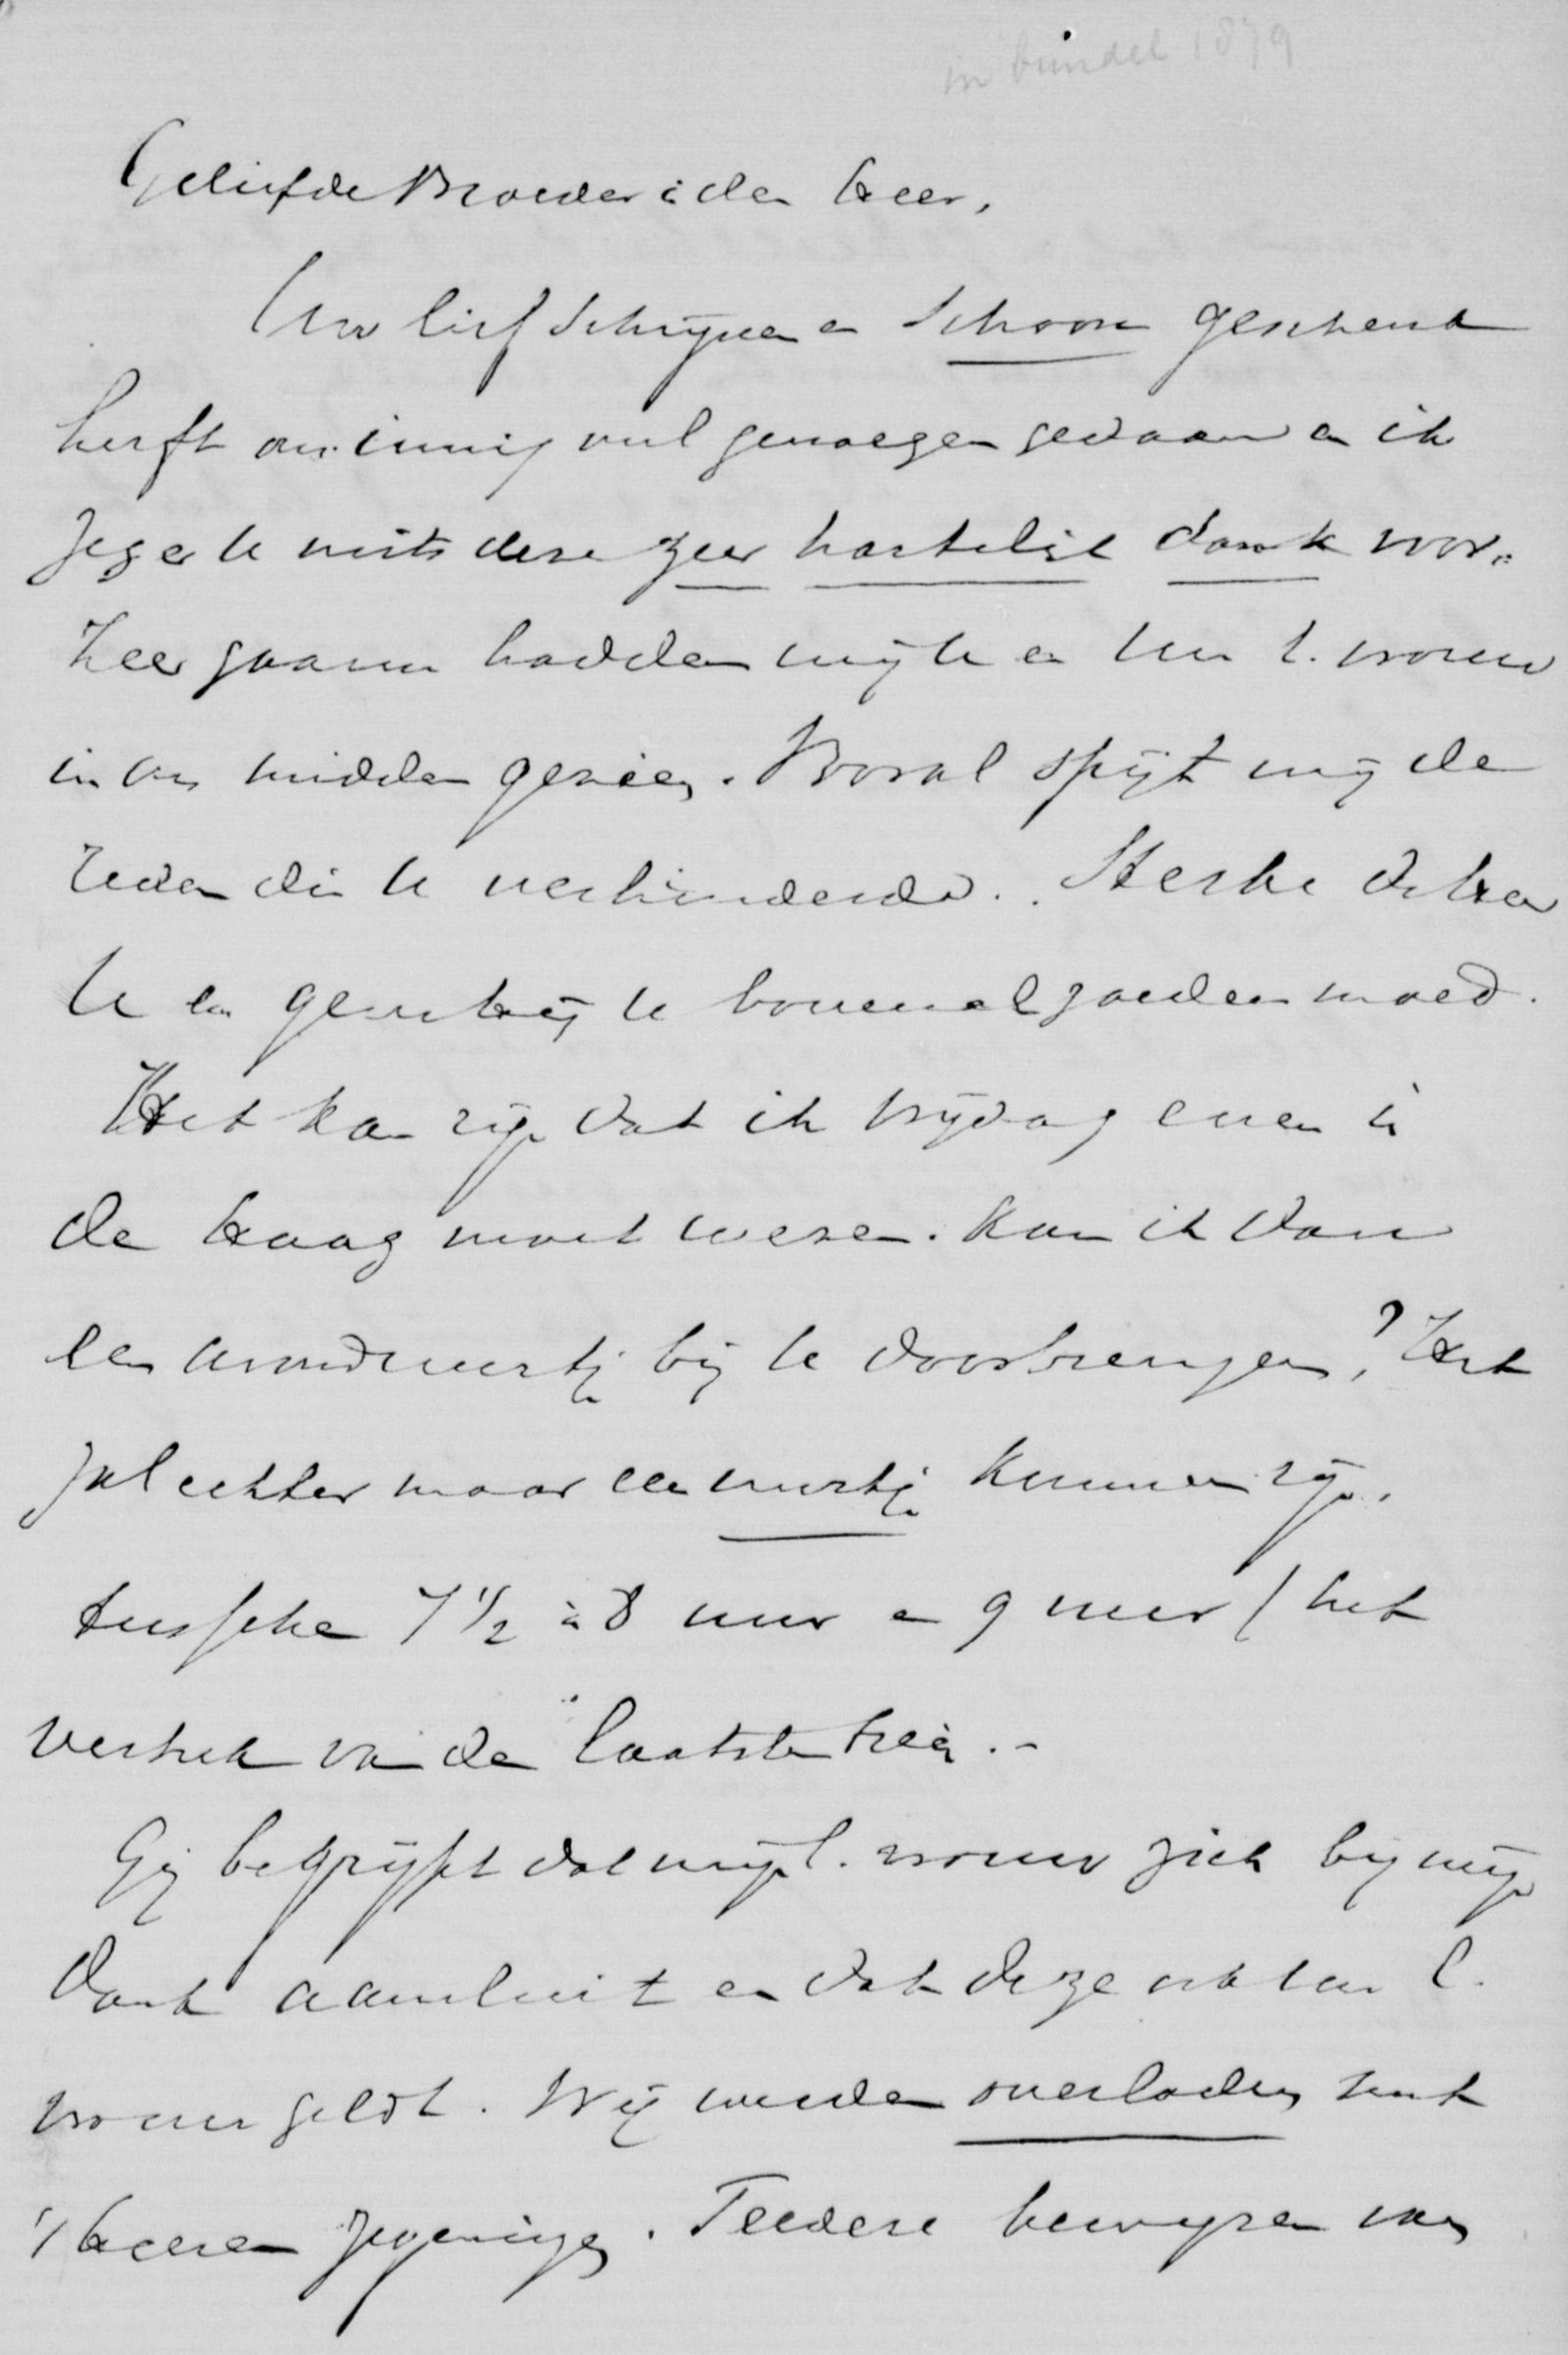 in bundel 1879
Geliefde Broeder i den Heer,
Uw lief schrijven en schoon geschenk
heeft ons innig veel genoegen gedaan en ik
zeg er U mits deze zeer hartelijk dank voor.
Zeer gaarne hadden wij U en Uw l. vrouw
in ons midden gezien. Vooral spijt mij de
reden die U verhinderde. Sterke de Heer
U en geve hij U bovenal goeden moed.
Het kan zijn dat ik vrijdag even in
de Haag moet wezen. Kan ik dan
een avonduurtje bij U doorbrengen? Het
zal echter maar een uurtje kunnen zijn,
tusschen 7 1/2 à 8 uur en 9 uur / het
vertrek van de laatste trein. -
Gij begrijpt dat mijn l. vrouw zich bij mijn
dank aansluit en dat deze ook uw l.
vrouw geldt. Wij werden overladen met
's Heeren zegeningen. Teedere bewijzen van